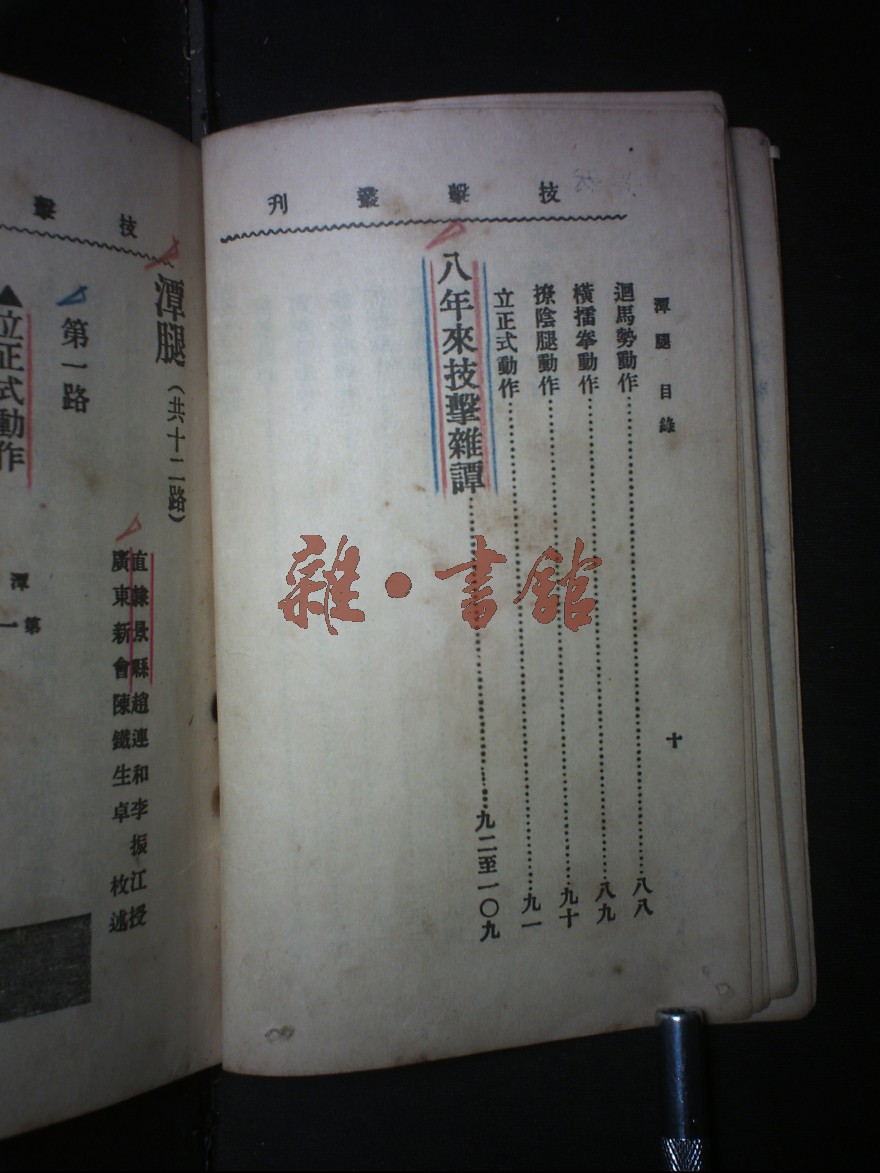 技擊叢刊
潭腿 目錄 十
迴馬勢動作 八八
橫擂拳動作 八九
撩陰腿動作 九十
立正式動作 九一
八年來技擊雜譚 九二至一〇九
技擊
潭腿（共十二路）
直隸景縣趙連和李振江授
廣東新會陳鐵生卓枚述
第一路
▲立正式動作
潭
第一
雜·書館